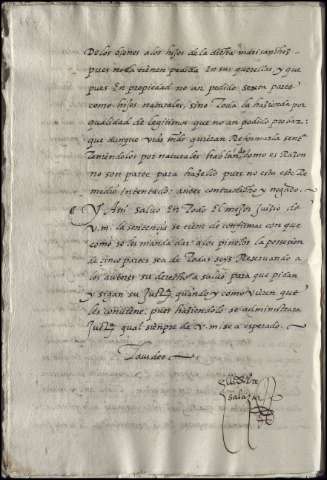 De los ojones a los hijos de la dicha ines sanchez
pues no la tienen pedida En sus querellas, y que
pues En propiedad no an pedido sexta parte
como hijos naturales, sino Toda la hazienda por
qualidad de legitimos que no an podido probar:
que aunque vras mds quieran Reformar la sentª
Teniendolos por naturales hablando como es Razon
no son parte para hazello pues no esta este Re
medio Intentado: antes contradicho y negado.
Y Ansi salvo En Todo El mejor juizio de
v.m. la sentencia se tiene de confirmar con que
como se les manda dar a los pinelos la posesion
de cinco partes sea de Todas seys Reservando a
los autores su derecho a salvo para que pidan
y sigan su Justª quando y como vieren que
les conviene, pues haziendolo se administrara
Justª qual siempre de v.m. se a esperado.
Salazar